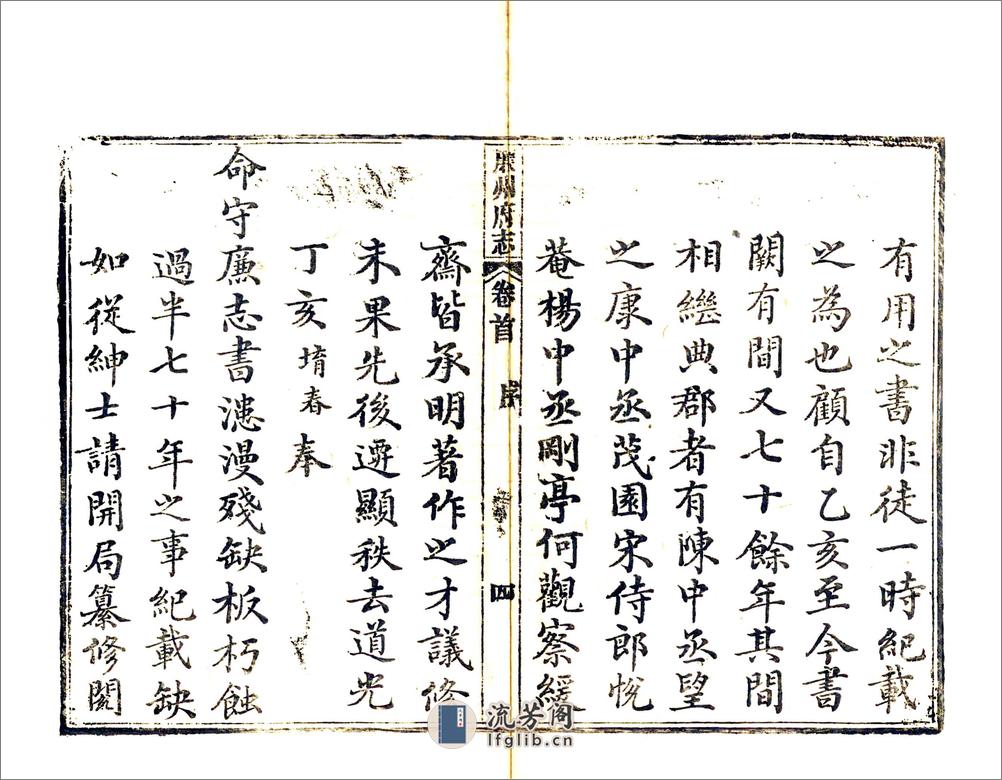 有用之書非徒一時紀載
之為也顧自乙亥至今書
闕有間又七十餘年其間
相繼典郡者有陳中丞望
之康中丞茂園宋侍郎悅
菴楊中丞剛亭何觀察緩
廉州府志 卷首 序 四
齋皆承明著作之才議修
未果先後遷顯秩去道光
丁亥堉春奉
命守廉志書漶漫殘缺板朽蝕
過半七十年之事紀載缺
如從紳士請開局纂修閱
流芳阁
lfglib.cn